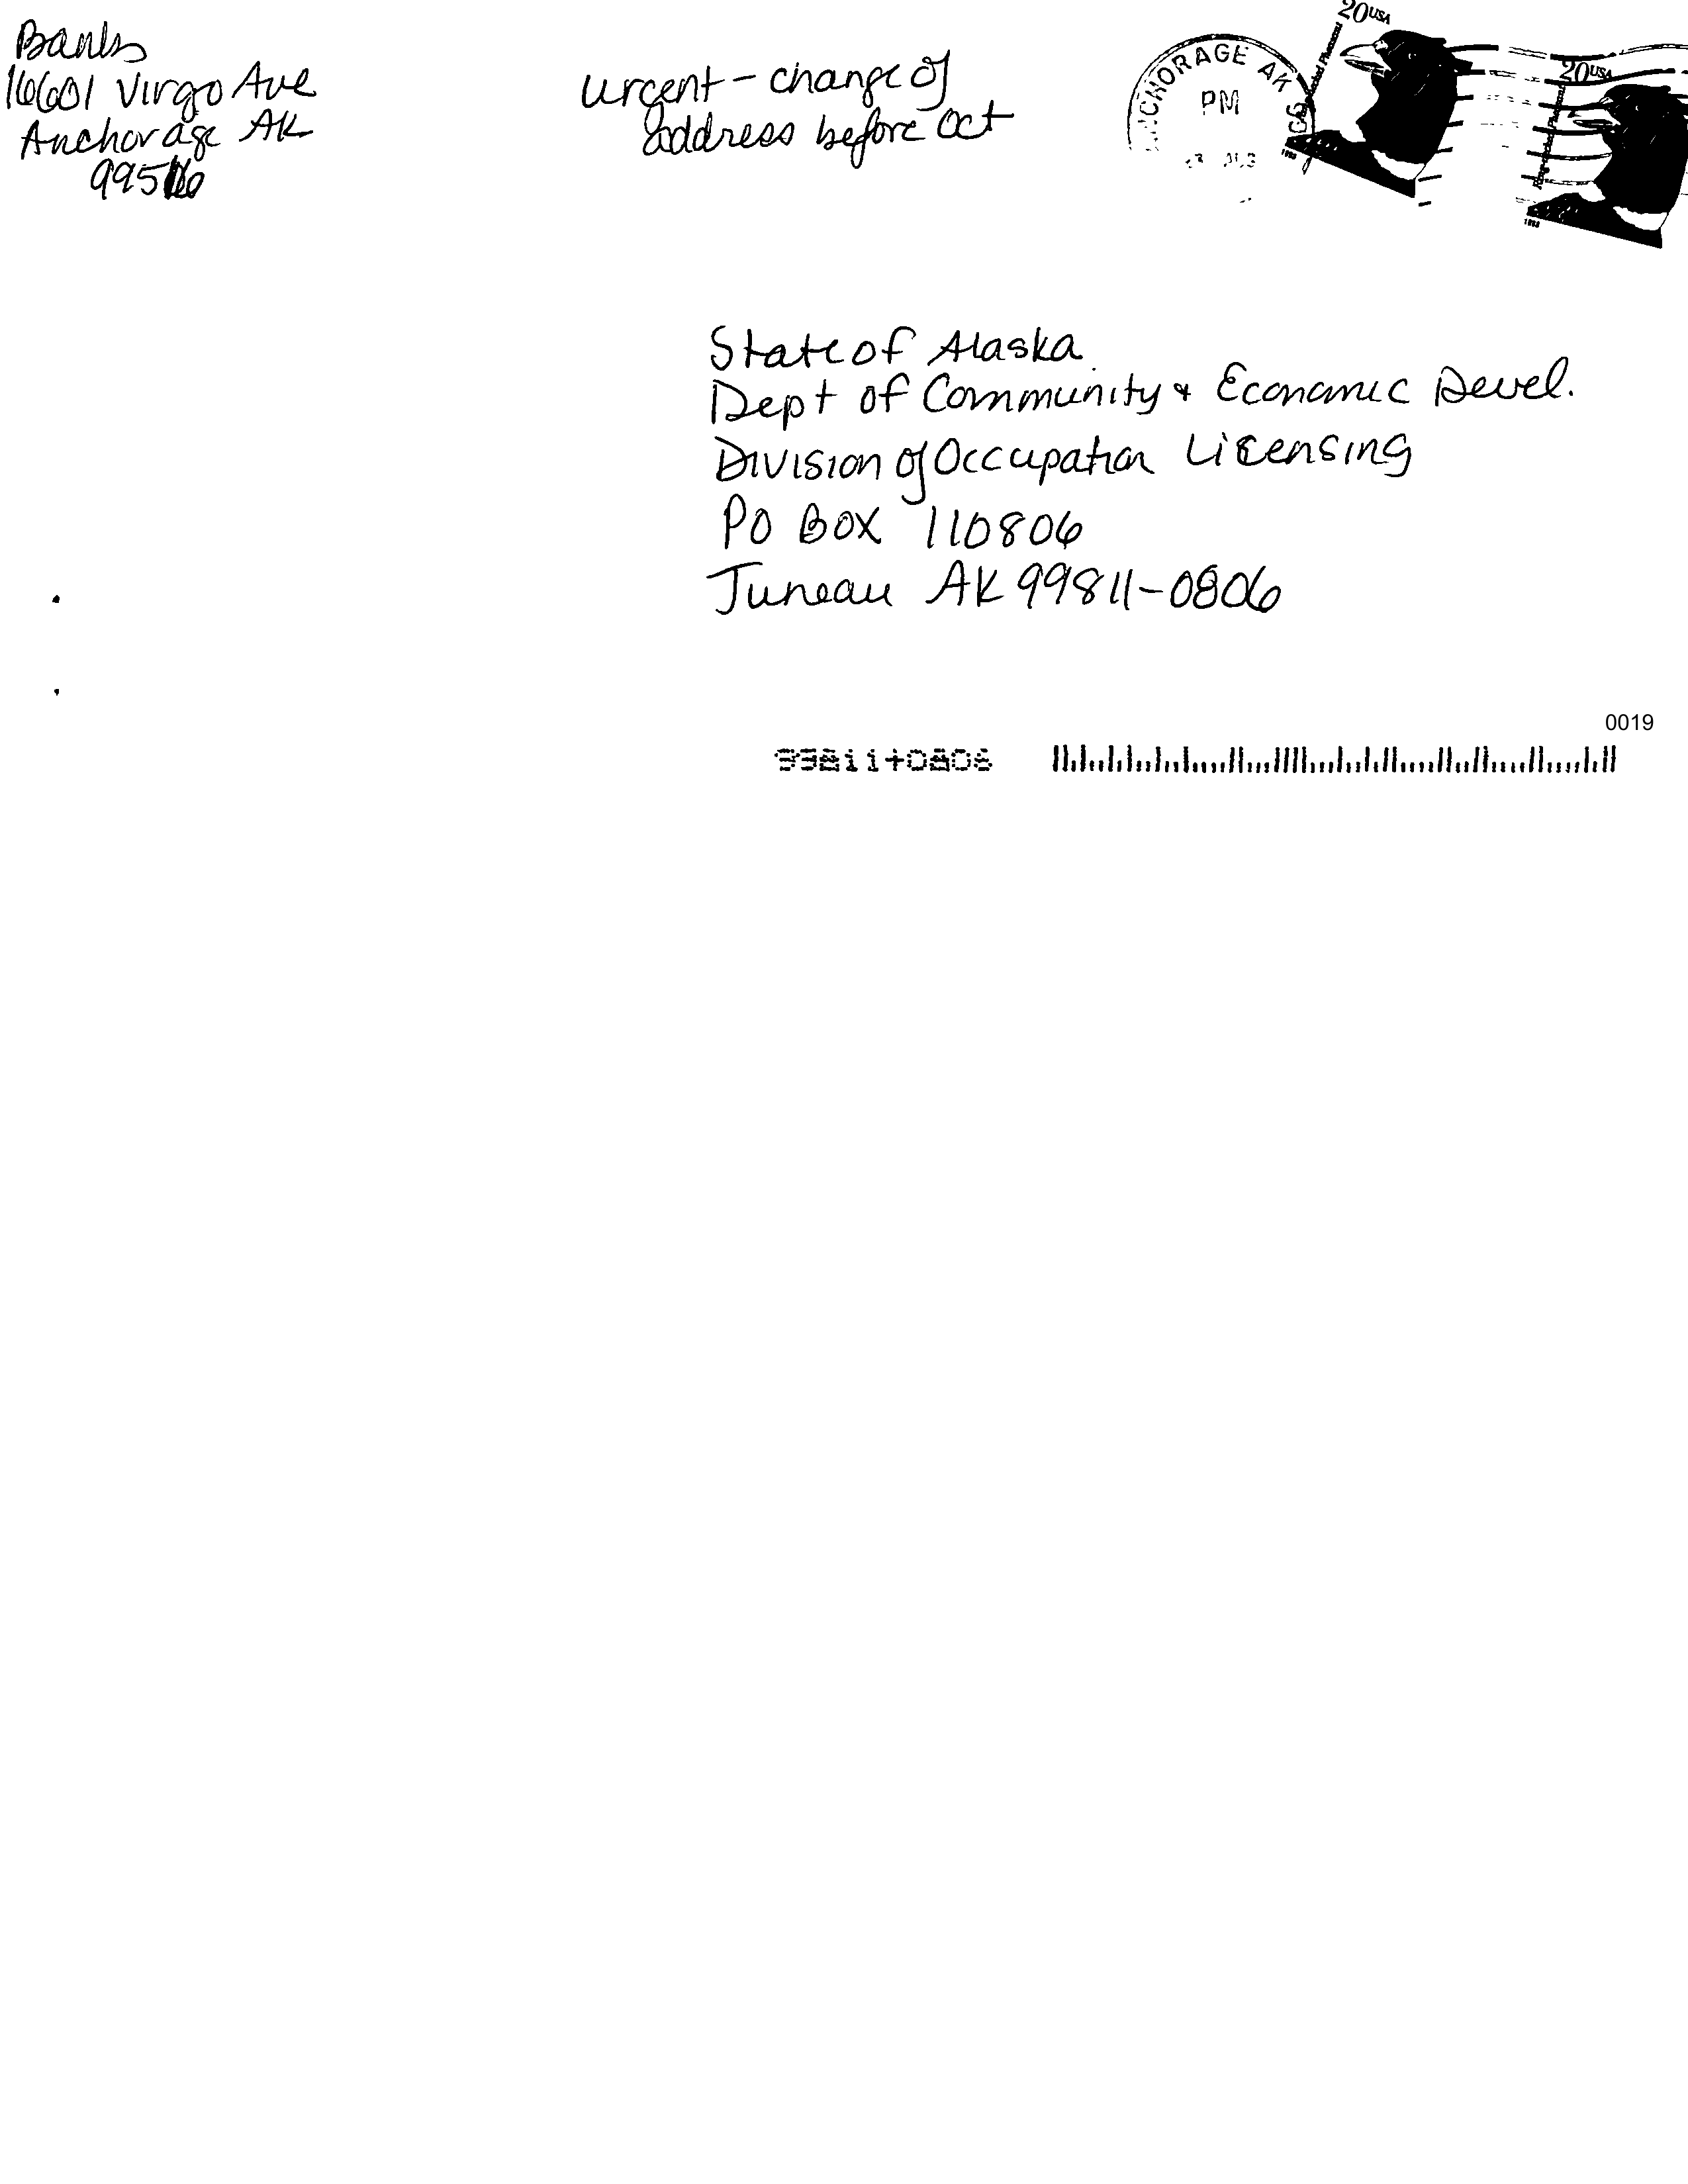 Banks
16601 Virgo Ave
Anchorage AK
99516
urgent - change of
address before Oct
ANCHORAGE AK
PM
20 USA
20 USA
State of Alaska
Dept of Community & Economic Devel.
Division of Occupation Licensing
PO Box 110806
Juneau AK 99811-0806
0019
99811+0806